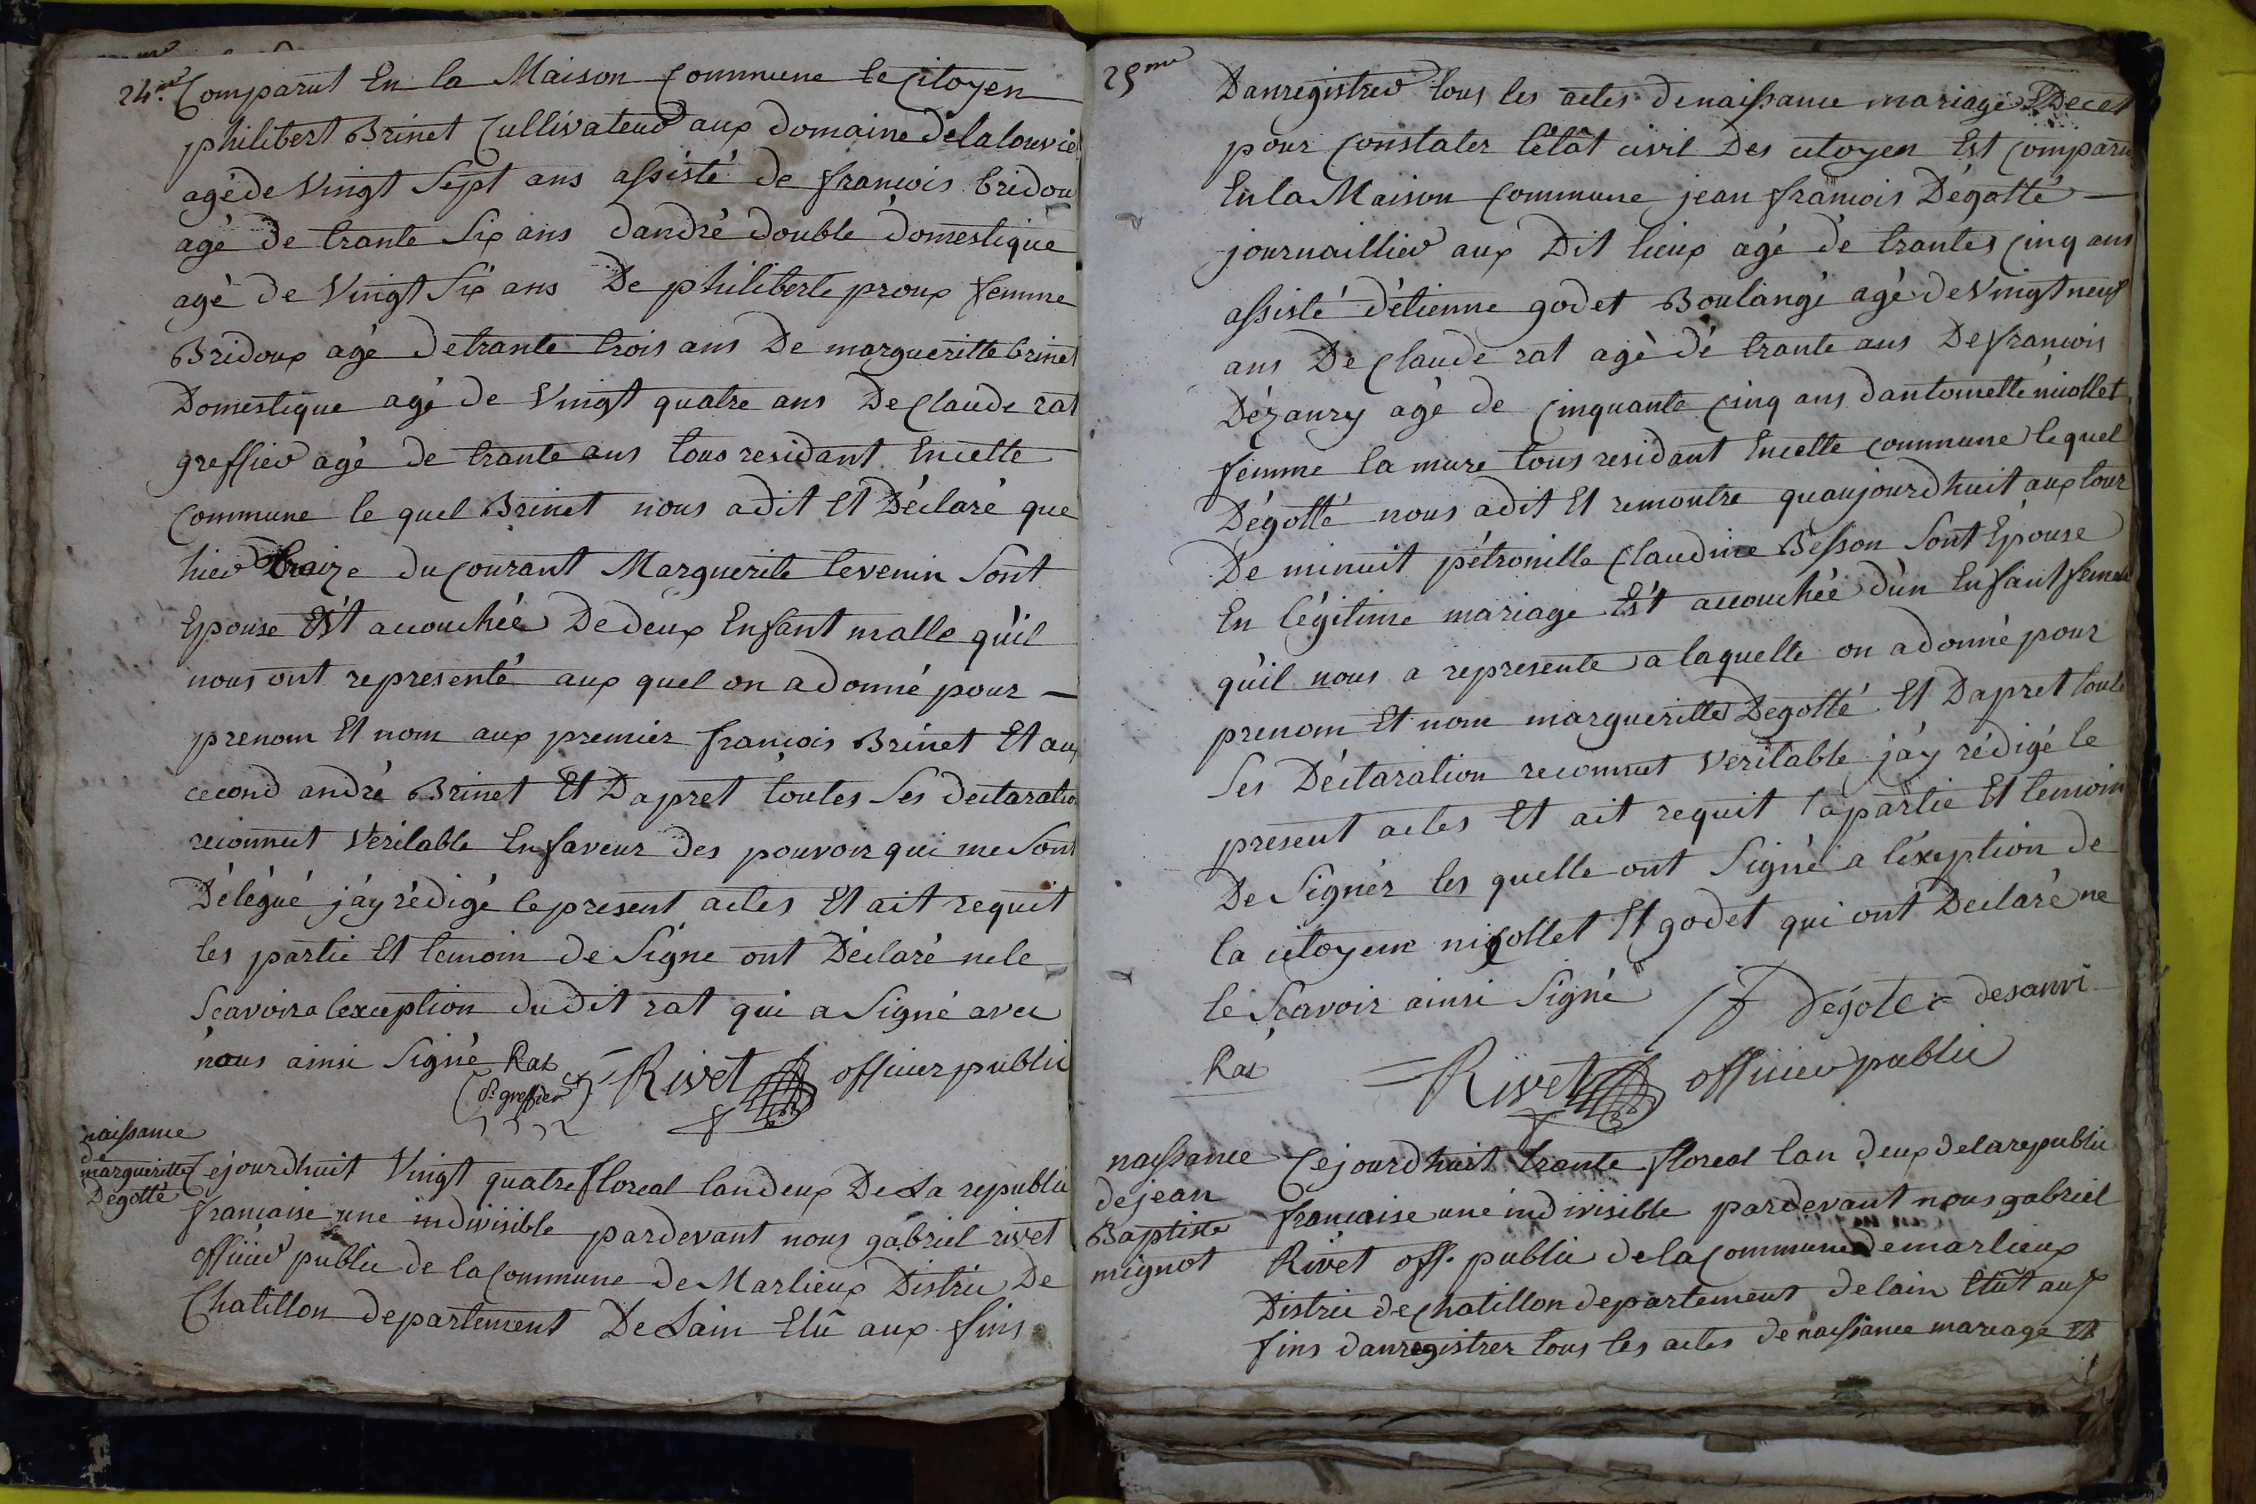 24.me
Comparut En la Maison Commune le Citoyen
philibert Brinet Cultivateur aux domaine delalouvie
agé de Vingt Sept ans assisté de francois bridou
agé de trante Six ans dandré double domestique
agé de Vingt Six ans De philiberte proux femme
Bridoux agé de trante trois ans De margueritte brinet
Domestique agé de Vingt quatre ans De Claude rat
greffier agé de trante ans tous residant Encette
Commune le quel Brinet nous adit Et Déclaré que
hier traize du Courant Marguerite tevenin Sont
Epouse Est accouchée De deux Enfant malle quil
nous ont representé aux quel on a donné pour —
prenom Et nom aux premier francois Brinet Et aux
cecond andré Brinet Et Dapret toutes Ses declaratio
reconnut Veritable En faveur des pouvoir qui me Sont
Délégué j'ay rédigé le present actes Et ait requit
les partie Et temoin de Signe ont Déclaré nele
Scavoir a lexception du dit rat qui a Signé avec
nous ainsi Signé Rat
(S. greffier) = Rivet officier public
naissance
de
margueritte
Dégotté
Cejourdhuit Vingt quatre floreal landeux De La republic
francaise une indivisible pardevant nous gabriel rivet
officier public de la Commune de Marlieux Distric De
Chatillon departement De Lain Elû aux fins
25me
Danregistrer tous les actes denaissance mariage Deces
pour Constater létât civil Des citoyen Est Comparu
En la Maison Commune jean francois Dégotté —
journaillier aux Dit lieux agé de trantes Cinq ans
assisté détienne godet Boulangé agé de Vingt neuf
ans De Claude rat agé dé trante ans De francois
Dézanry agé de Cinquante Cinq ans dantoinette nicollet
femme la mure tous residant Encette Commune le quel
Dégotté nous adit Et remontre quaujourdhuit aux tour
De minuit pétronille Claudine Besson Sont Epouse
En légitime mariage Est accouchée dun Enfant femelle
quil nous a representé a laquelle on a donné pour
prenom Et nom margueritte Degotté Et Dapret toute
Ses Déclaration reconnut Veritable j'ay rédigé le
present actes Et ait requit la partie Et temoin
De Signér les quelle ont Signé a léxeption de
la citoyene nicollet Et godet qui ont Déclaré ne
le Scavoir ainsi Signé Jf Dégote desanri
Rat = Rivet officier public
naissance
de jean
Baptiste
mignot
Cejourdhuit trante floreal lan deux delarepublic
francaise une indivisible pardevant nous gabriel
Rivet off. public de la Commune demarlieux
Distric de Chatillon departement delain Elût aux
fins danregistrer tous les actes de naissance mariage Et